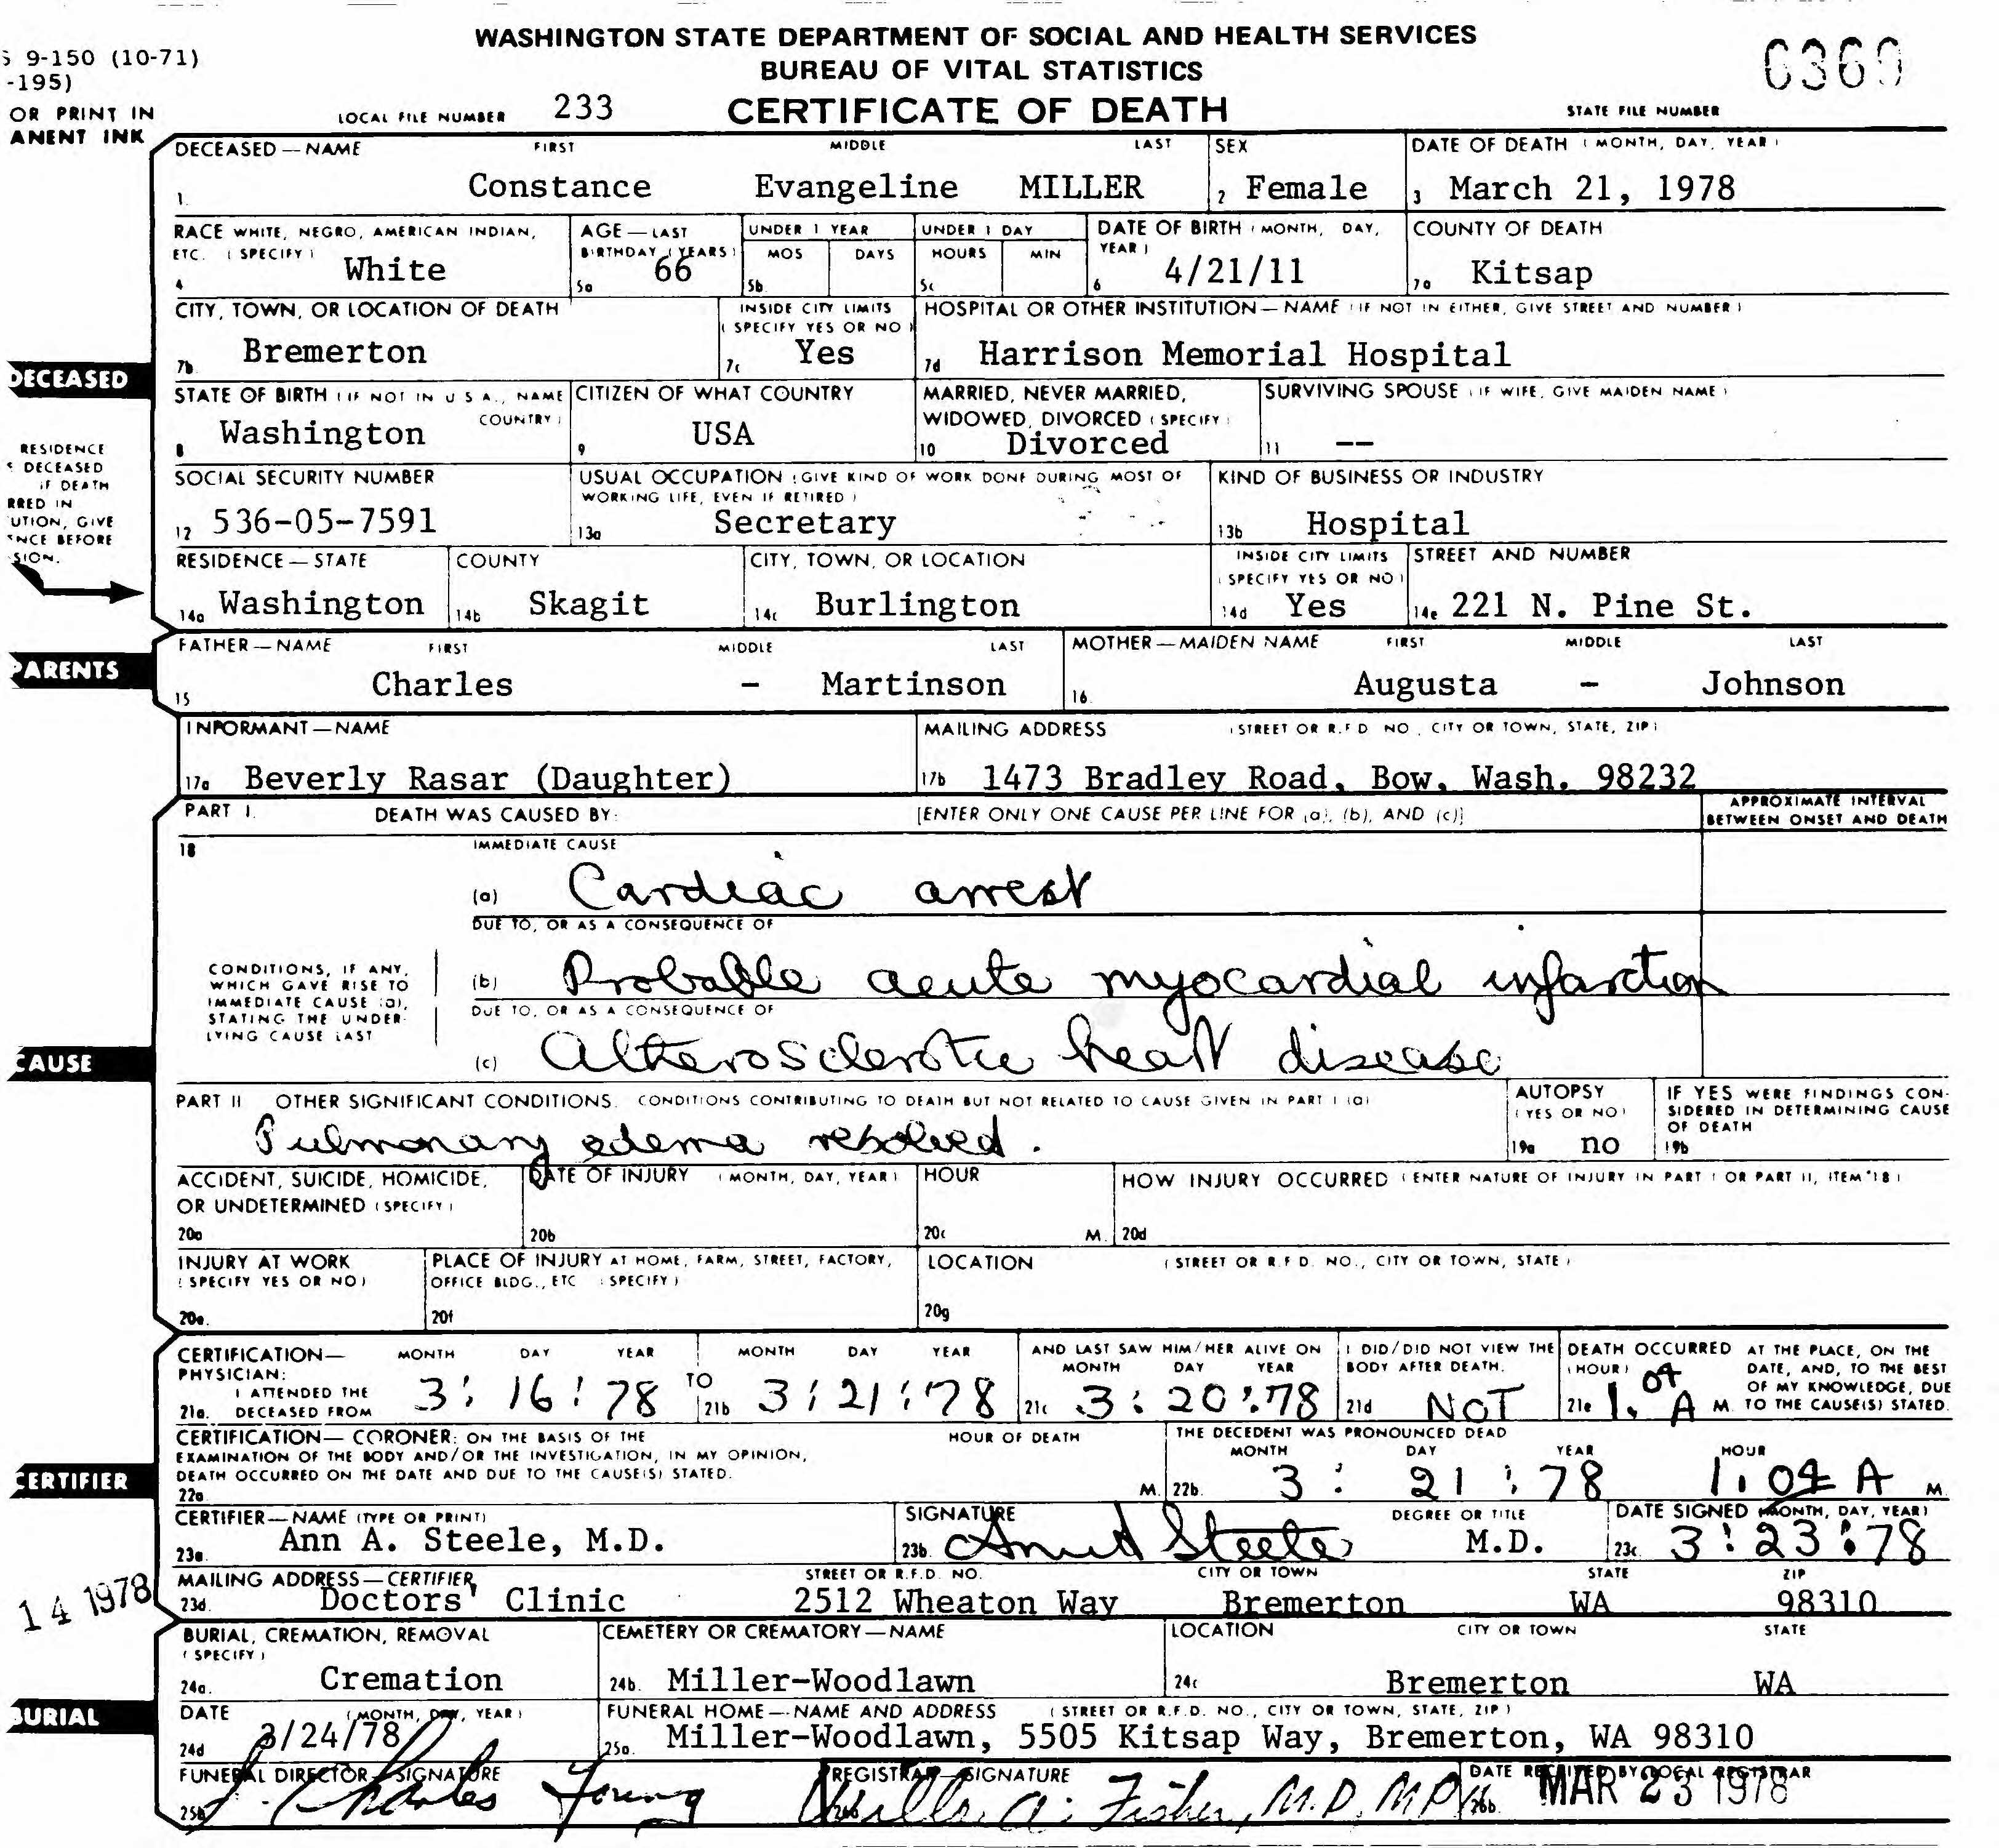 WASHINGTON STATE DEPARTMENT OF SOCIAL AND HEALTH SERVICES
BUREAU OF VITAL STATISTICS
CERTIFICATE OF DEATH
9-150 (10-71)
-195)
OR PRINT IN
ANENT INK
LOCAL FILE NUMBER 233
6369
STATE FILE NUMBER
DECEASED — NAME FIRST MIDDLE LAST SEX DATE OF DEATH (MONTH, DAY, YEAR)
1. Constance Evangeline MILLER 2 Female 3 March 21, 1978
RACE WHITE, NEGRO, AMERICAN INDIAN, ETC. (SPECIFY) AGE — LAST BIRTHDAY (YEARS) UNDER 1 YEAR MOS DAYS UNDER 1 DAY HOURS MIN DATE OF BIRTH (MONTH, DAY, YEAR) COUNTY OF DEATH
4 White 5a 66 5b. 5c 6 4/21/11 7a Kitsap
CITY, TOWN, OR LOCATION OF DEATH INSIDE CITY LIMITS (SPECIFY YES OR NO) HOSPITAL OR OTHER INSTITUTION — NAME (IF NOT IN EITHER, GIVE STREET AND NUMBER)
7b. Bremerton 7c Yes 7d Harrison Memorial Hospital
DECEASED
STATE OF BIRTH (IF NOT IN U S A., NAME COUNTRY) CITIZEN OF WHAT COUNTRY MARRIED, NEVER MARRIED, WIDOWED, DIVORCED (SPECIFY) SURVIVING SPOUSE (IF WIFE, GIVE MAIDEN NAME)
8 Washington 9 USA 10 Divorced 11 --
RESIDENCE
DECEASED
IF DEATH
RRED IN
UTION, GIVE
NCE BEFORE
SION.
SOCIAL SECURITY NUMBER USUAL OCCUPATION (GIVE KIND OF WORK DONE DURING MOST OF WORKING LIFE, EVEN IF RETIRED) KIND OF BUSINESS OR INDUSTRY
12 536-05-7591 13a Secretary 13b Hospital
RESIDENCE — STATE COUNTY CITY, TOWN, OR LOCATION INSIDE CITY LIMITS (SPECIFY YES OR NO) STREET AND NUMBER
14a Washington 14b Skagit 14c Burlington 14d Yes 14e 221 N. Pine St.
PARENTS
FATHER — NAME FIRST MIDDLE LAST MOTHER — MAIDEN NAME FIRST MIDDLE LAST
15 Charles - Martinson 16. Augusta - Johnson
INFORMANT — NAME MAILING ADDRESS (STREET OR R.F.D. NO., CITY OR TOWN, STATE, ZIP)
17a Beverly Rasar (Daughter) 17b 1473 Bradley Road, Bow, Wash. 98232
PART I. DEATH WAS CAUSED BY: [ENTER ONLY ONE CAUSE PER LINE FOR (a), (b), AND (c)] APPROXIMATE INTERVAL BETWEEN ONSET AND DEATH
18 IMMEDIATE CAUSE
(a) Cardiac arrest
DUE TO, OR AS A CONSEQUENCE OF
CONDITIONS, IF ANY,
WHICH GAVE RISE TO
IMMEDIATE CAUSE (a),
STATING THE UNDER-
LYING CAUSE LAST
(b) Probable acute myocardial infarction
DUE TO, OR AS A CONSEQUENCE OF
(c) Altherosclerotic heart disease
CAUSE
PART II OTHER SIGNIFICANT CONDITIONS. CONDITIONS CONTRIBUTING TO DEATH BUT NOT RELATED TO CAUSE GIVEN IN PART I (a) AUTOPSY (YES OR NO) IF YES WERE FINDINGS CONSIDERED IN DETERMINING CAUSE OF DEATH
Pulmonary edema resolved. 19a no 19b
ACCIDENT, SUICIDE, HOMICIDE, OR UNDETERMINED (SPECIFY) DATE OF INJURY (MONTH, DAY, YEAR) HOUR HOW INJURY OCCURRED (ENTER NATURE OF INJURY IN PART I OR PART II, ITEM 18)
20a 20b 20c M. 20d
INJURY AT WORK (SPECIFY YES OR NO) PLACE OF INJURY AT HOME, FARM, STREET, FACTORY, OFFICE BLDG., ETC (SPECIFY) LOCATION (STREET OR R.F.D. NO., CITY OR TOWN, STATE)
20e. 20f 20g
CERTIFICATION — PHYSICIAN: I ATTENDED THE DECEASED FROM MONTH DAY YEAR TO MONTH DAY YEAR AND LAST SAW HIM/HER ALIVE ON MONTH DAY YEAR I DID/DID NOT VIEW THE BODY AFTER DEATH. DEATH OCCURRED (HOUR) AT THE PLACE, ON THE DATE, AND, TO THE BEST OF MY KNOWLEDGE, DUE TO THE CAUSE(S) STATED.
21a. 3 16 78 21b 3 21 78 21c 3 20 78 21d NOT 21e 1.04 A M.
CERTIFIER
CERTIFICATION — CORONER: ON THE BASIS OF THE EXAMINATION OF THE BODY AND/OR THE INVESTIGATION, IN MY OPINION, DEATH OCCURRED ON THE DATE AND DUE TO THE CAUSE(S) STATED. HOUR OF DEATH THE DECEDENT WAS PRONOUNCED DEAD MONTH DAY YEAR HOUR
22a M. 22b. 3 21 78 1:04 A M.
CERTIFIER — NAME (TYPE OR PRINT) SIGNATURE DEGREE OR TITLE DATE SIGNED (MONTH, DAY, YEAR)
23a. Ann A. Steele, M.D. 23b. Steele M.D. 23c 3:23:78
14 1978
MAILING ADDRESS — CERTIFIER STREET OR R.F.D. NO. CITY OR TOWN STATE ZIP
23d. Doctors' Clinic 2512 Wheaton Way Bremerton WA 98310
BURIAL, CREMATION, REMOVAL (SPECIFY) CEMETERY OR CREMATORY — NAME LOCATION CITY OR TOWN STATE
24a. Cremation 24b. Miller-Woodlawn 24c Bremerton WA
BURIAL
DATE (MONTH, DAY, YEAR) FUNERAL HOME — NAME AND ADDRESS (STREET OR R.F.D. NO., CITY OR TOWN, STATE, ZIP)
24d 3/24/78 25a. Miller-Woodlawn, 5505 Kitsap Way, Bremerton, WA 98310
FUNERAL DIRECTOR — SIGNATURE REGISTRAR — SIGNATURE DATE RECEIVED BY LOCAL REGISTRAR
25b J. Charles Young 26a Willa A. Fisher, M.D. MPH 26b. MAR 23 1978